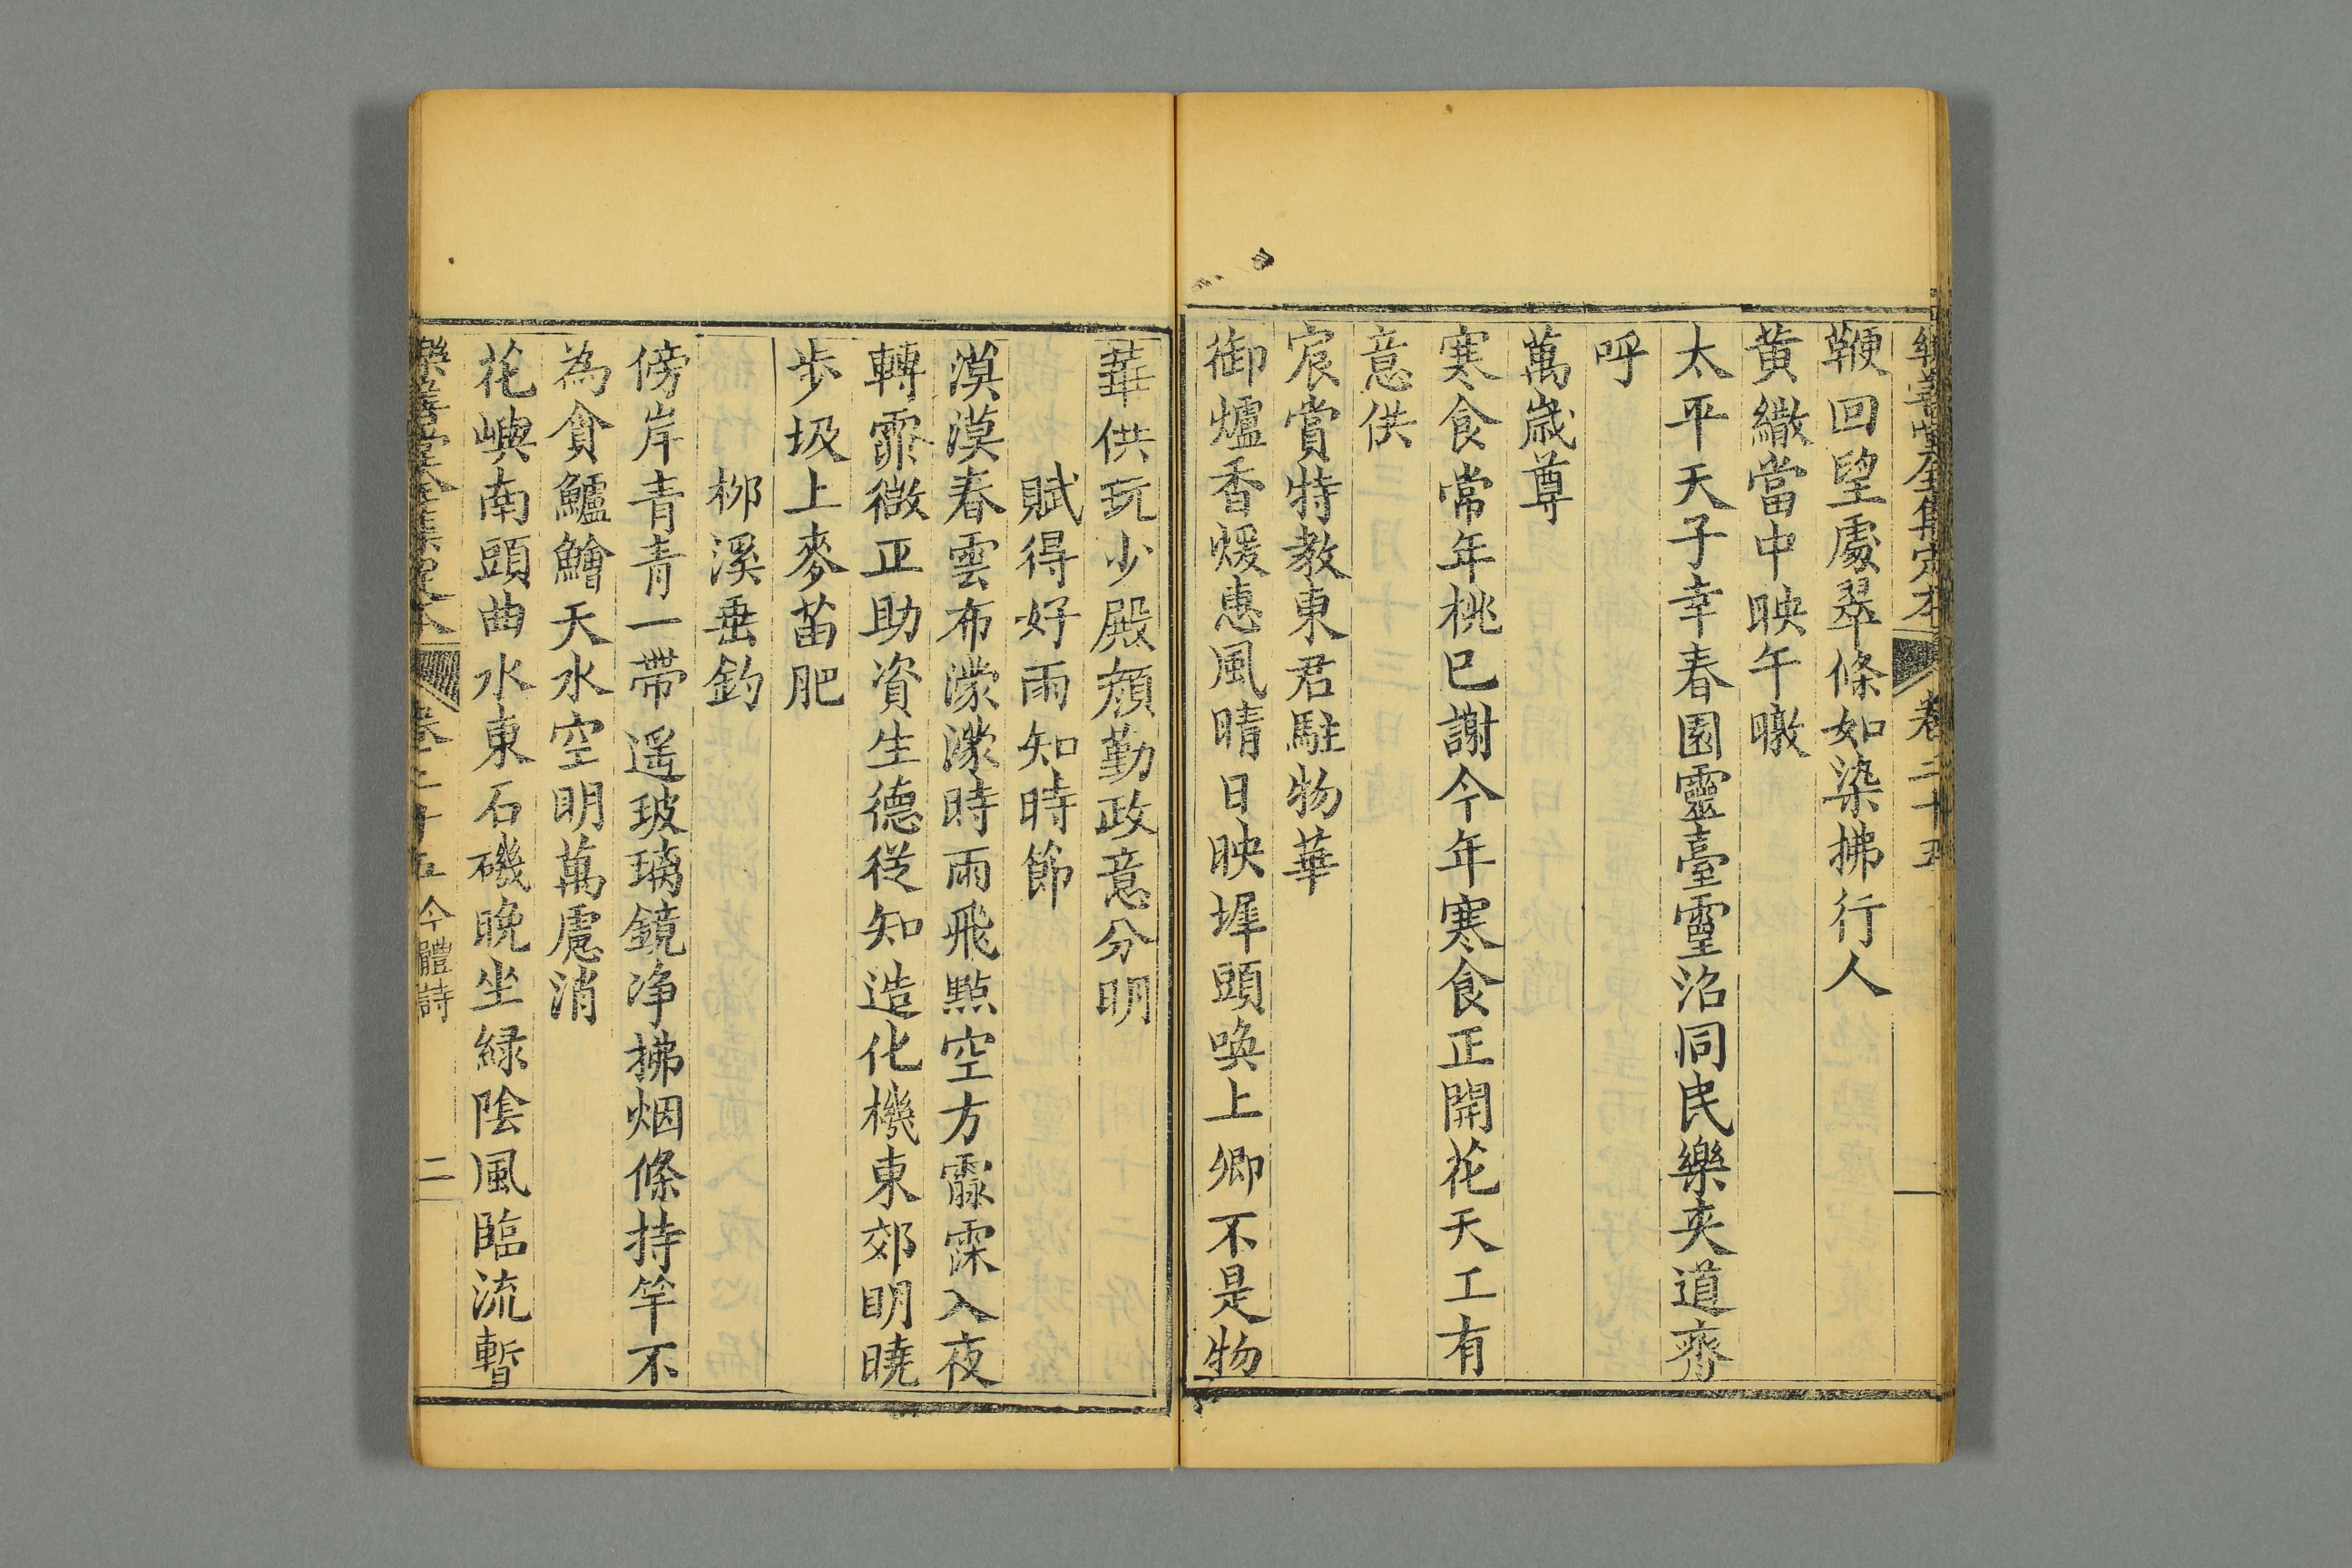 樂善堂全集定本 卷二十五
鞭回望處翠條如染拂行人
黄繖當中映午暾
太平天子幸春園靈臺靈沼同民樂夾道齊
呼
萬歲尊
寒食常年桃已謝今年寒食正開花天工有
意供
宸賞特教東君駐物華
御爐香煖惠風晴日映墀頭喚上卿不是物
華供玩少殿顏勤政意分明
賦得好雨知時節
漠漠春雲布濛濛時雨飛㸃空方霡霂入夜
轉霏微正助資生德從知造化機東郊明曉
歩圾上麥苗肥
柳溪垂釣
傍岸青青一帶遥玻璃鏡净拂烟條持竿不
為貪鱸鱠天水空明萬慮消
花嶼南頭曲水東石磯晚坐緑陰風臨流暫
樂善堂全集定本 卷二十五 今體詩 二